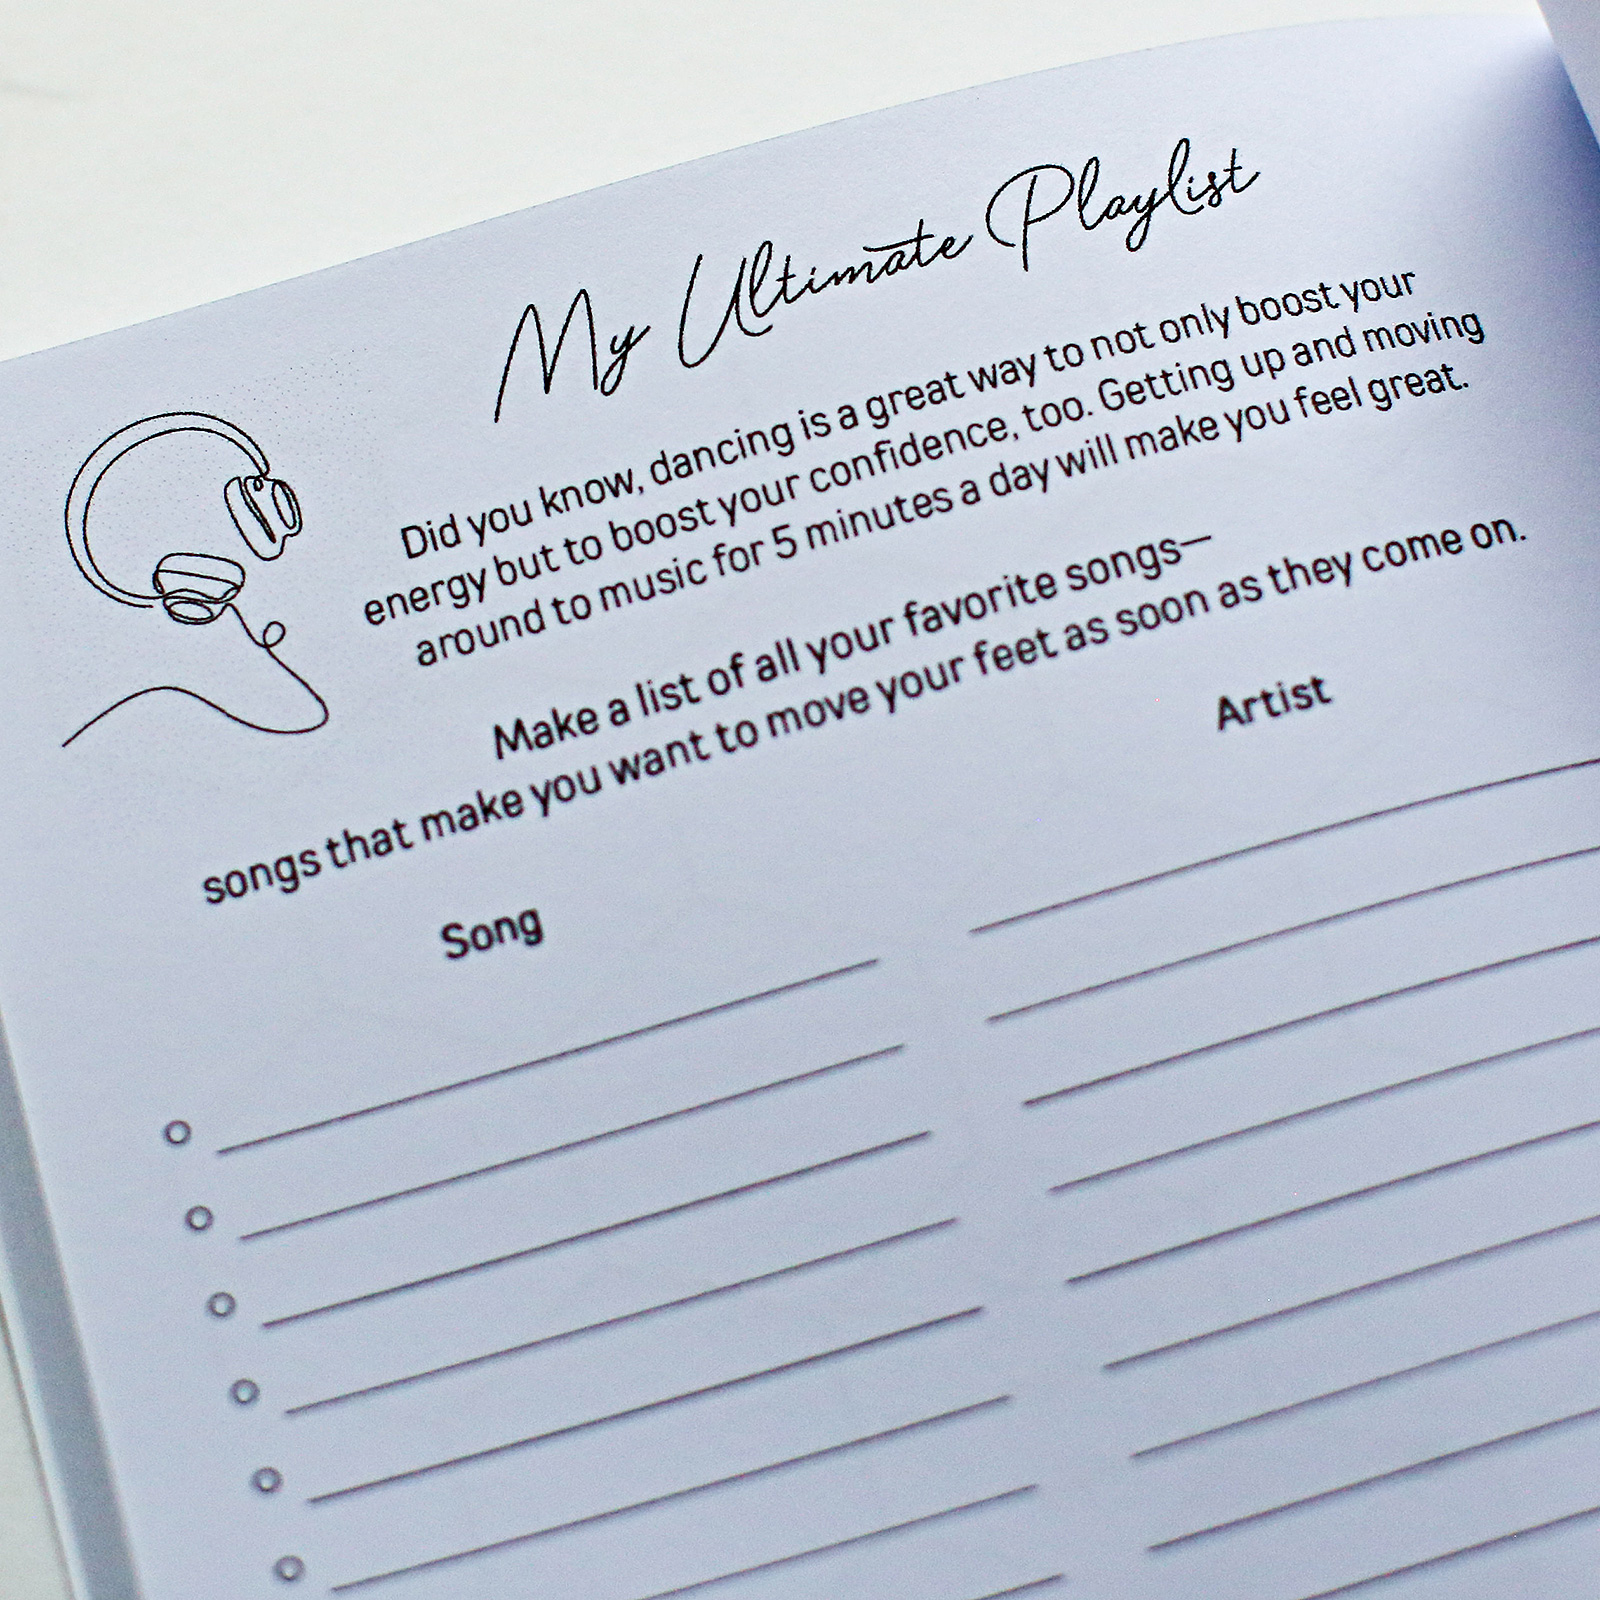 My Ultimate Playlist
Did you know, dancing is a great way to not only boost your
energy but to boost your confidence, too. Getting up and moving
around to music for 5 minutes a day will make you feel great.
Make a list of all your favorite songs—
songs that make you want to move your feet as soon as they come on.
Song
Artist